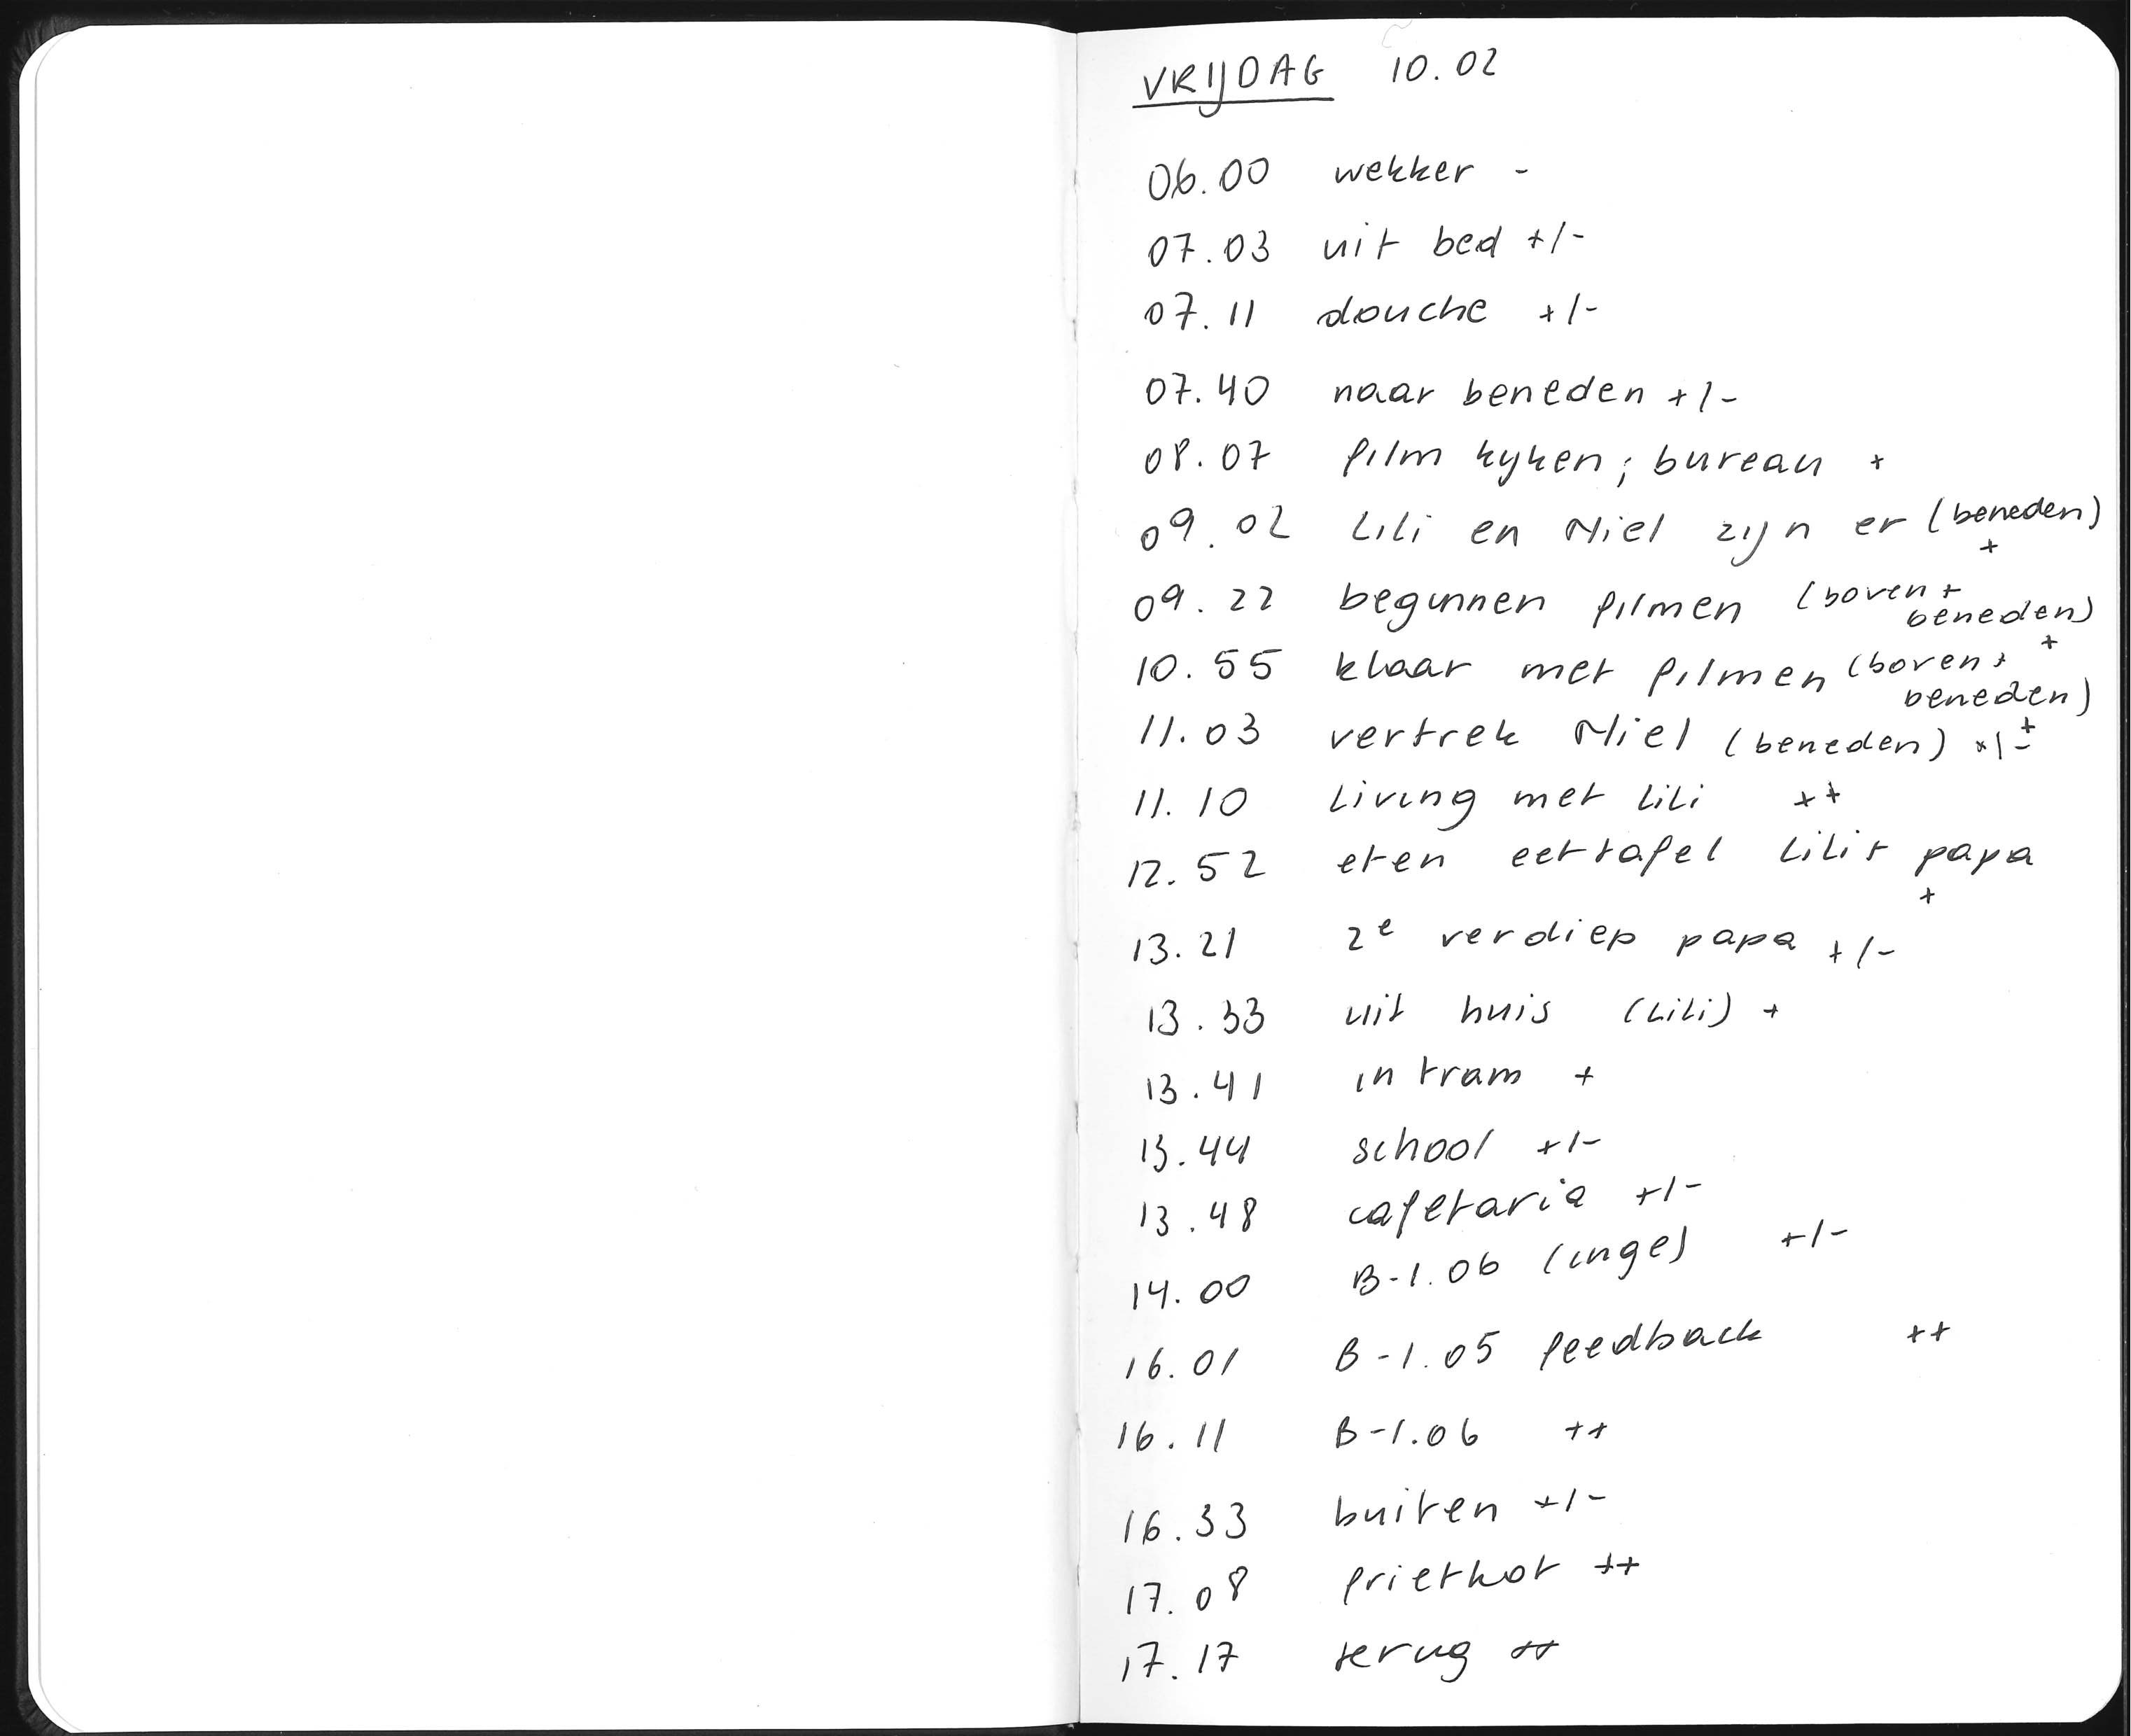 VRIJDAG 10.02
06.00 wekker -
07.03 uit bed +/-
07.11 douche +/-
07.40 naar beneden +/-
08.07 film kyken; bureau +
09.02 Lili en Niel zijn er (beneden)
+
09.22 beginnen filmen (boven +
beneden)
+
10.55 klaar met filmen (boven +
beneden)
+
11.03 vertrek Niel (beneden) +/-
11.10 Living met Lili ++
12.52 eten eettafel Lili + papa
+
13.21 2e verdiep papa +/-
13.33 uit huis (Lili) +
13.41 in tram +
13.44 school +/-
13.48 cafetaria +/-
14.00 B-1.06 (inge) +/-
16.01 B-1.05 feedback ++
16.11 B-1.06 ++
16.33 buiten +/-
17.08 friethot ++
17.17 terug ++